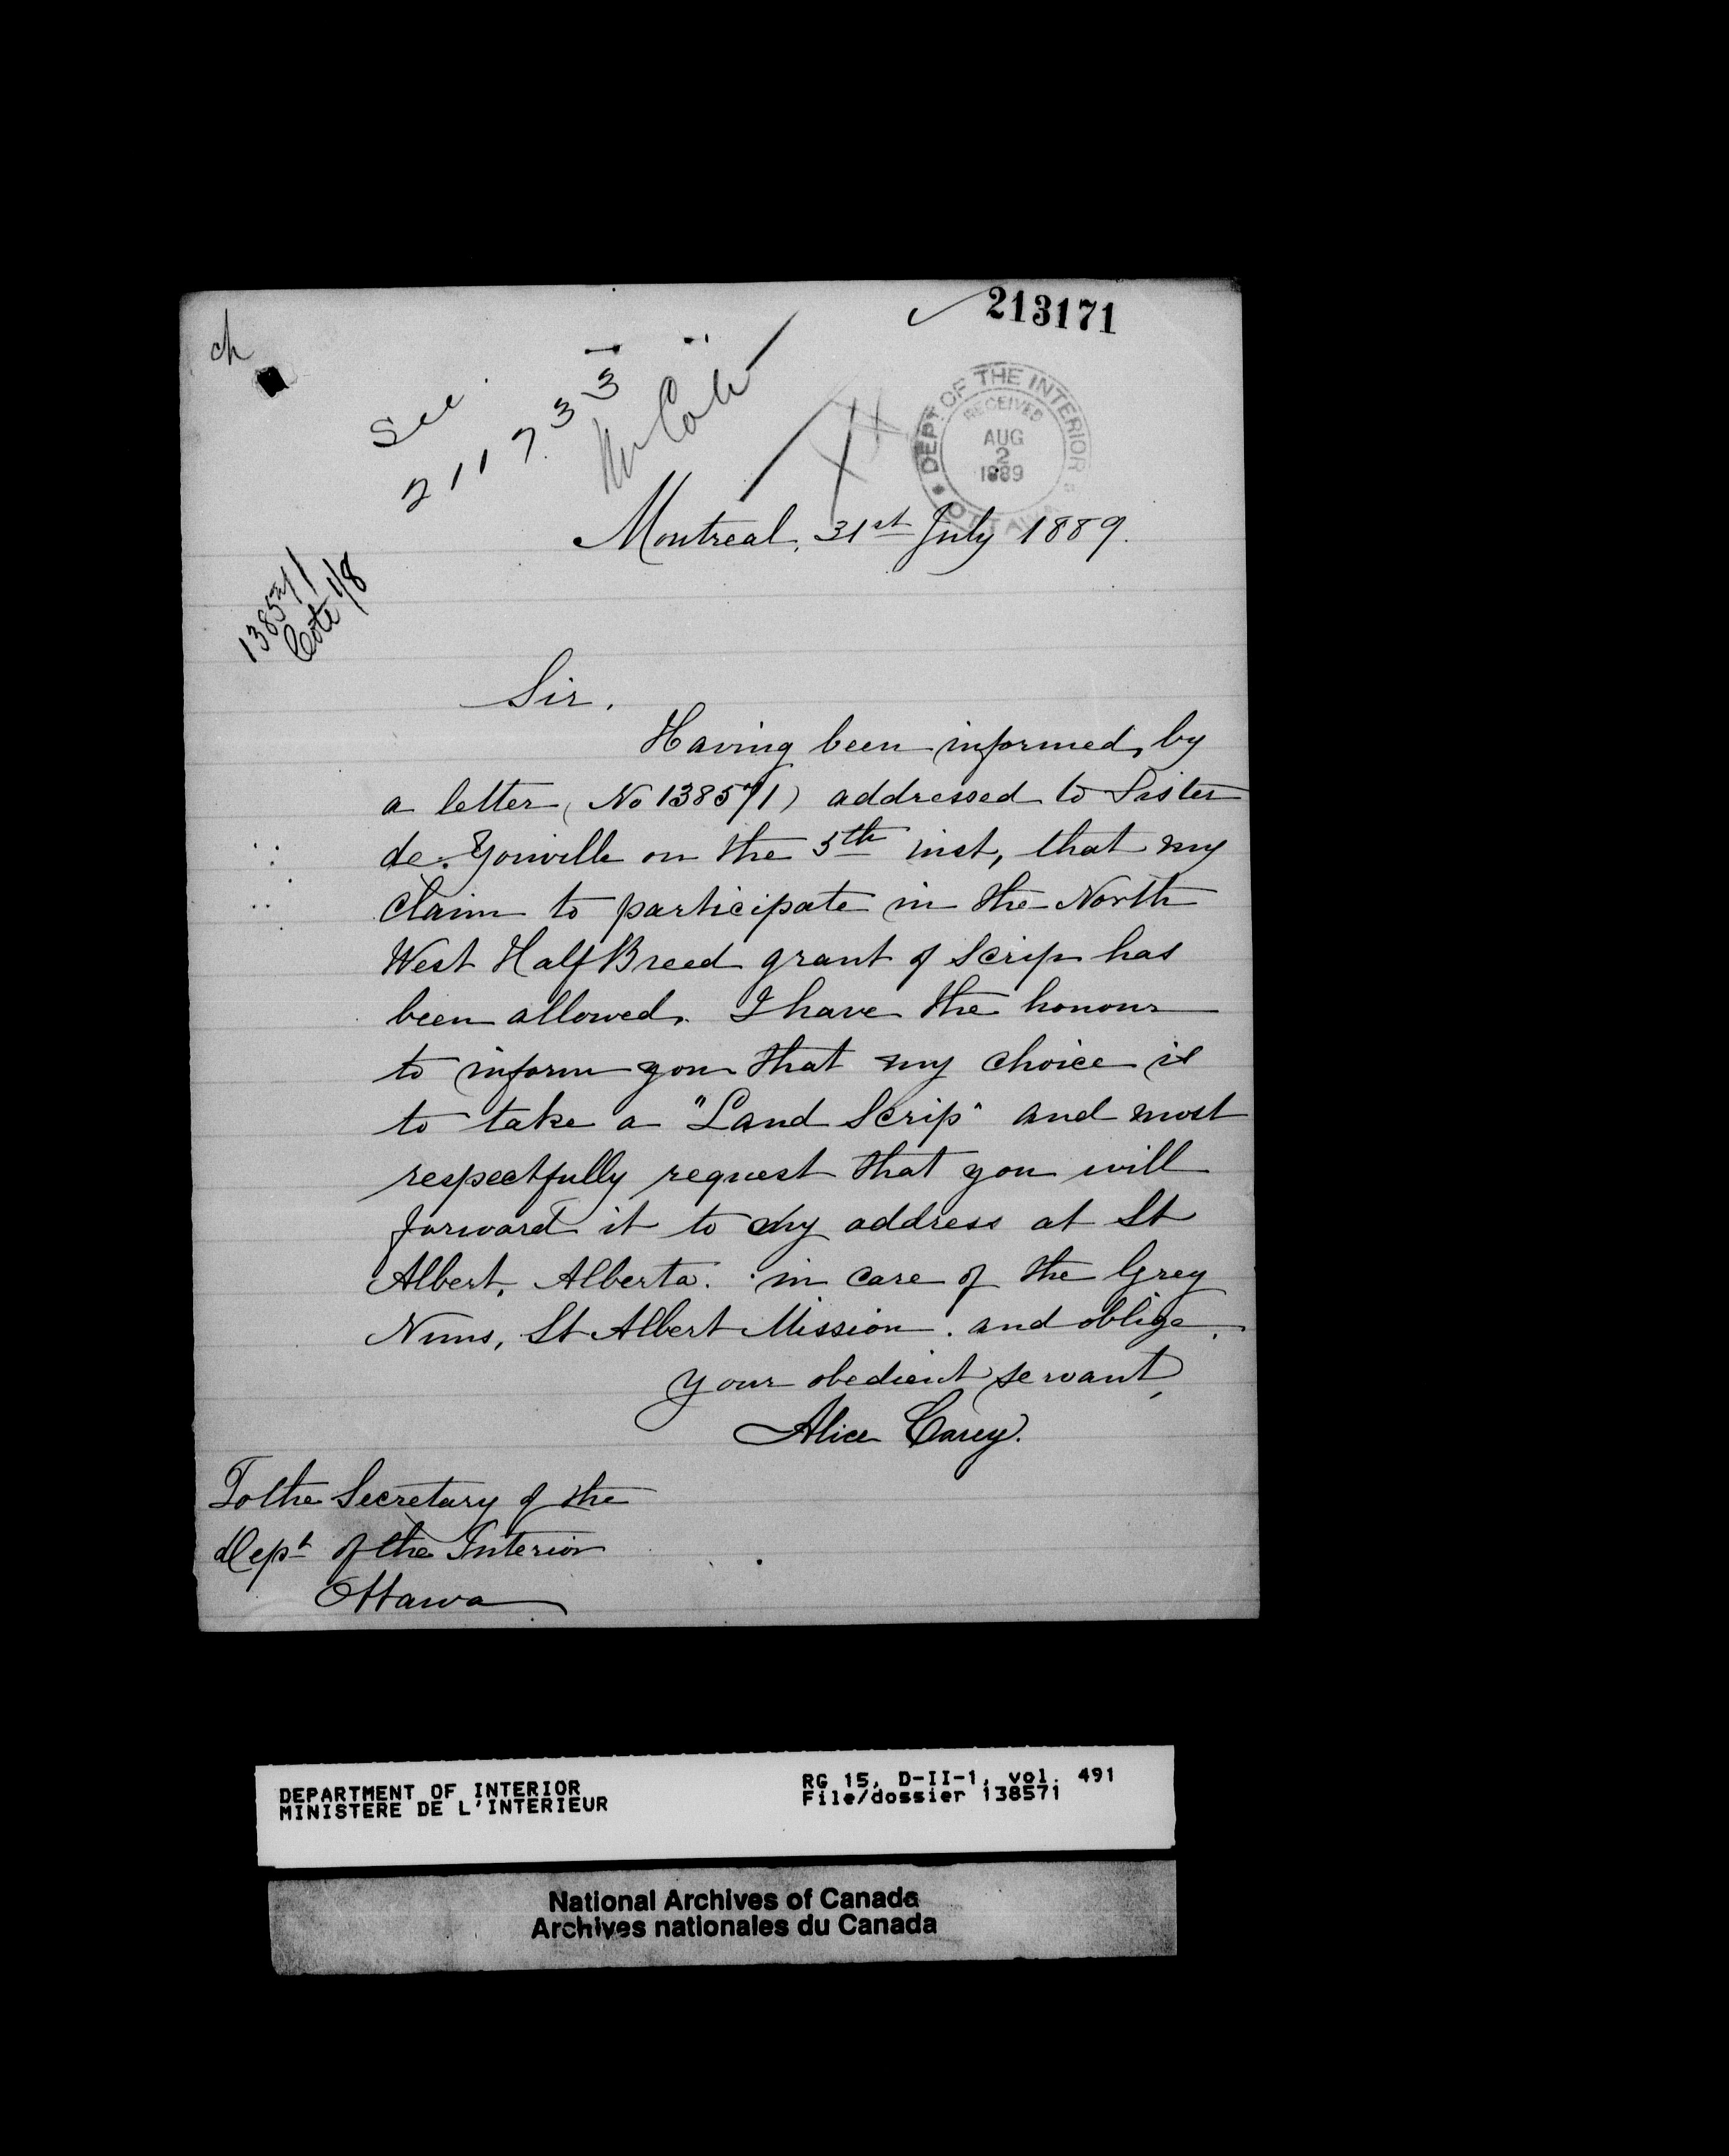 213171
ch
See
211733
Mr Cote
DEPT OF THE INTERIOR
RECEIVED
AUG
2
1889
OTTAWA
Montreal, 31st July 1889.
138571
Cote 1/8
Sir,
Having been informed, by
a letter (No 138571) addressed to Sister
de Youville on the 5th inst, that my
claim to participate in the North
West Half Breed grant of Scrip has
been allowed. I have the honour
to inform you that my choice is
to take a "Land Scrip" and most
respectfully request that you will
forward it to my address at St
Albert, Alberta. in care of the Grey
Nuns, St Albert Mission. and oblige,
your obedient servant,
Alice Carey.
To the Secretary of the
Dept of the Interior
Ottawa
DEPARTMENT OF INTERIOR
MINISTERE DE L'INTERIEUR
RG 15, D-II-1, vol. 491
File/dossier 138571
National Archives of Canada
Archives nationales du Canada